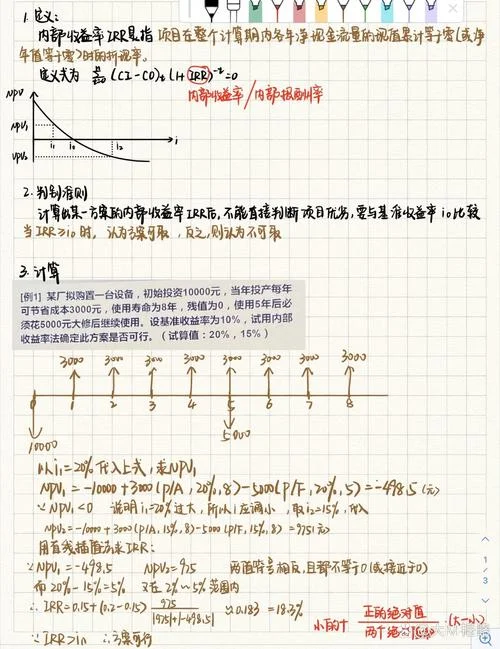 1. 定义:
内部收益率IRR是指 项目在整个计算期内各年净现金流量的现值累计等于零(或净
年值等于零)时的折现率。
定义式为 Σ (CI-CO)t (1+IRR)^-t=0
内部收益率/内部报酬率
NPV
NPV1
NPV2
i1 i0 i2 i
2. 判别准则
计算出某一方案的内部收益率IRR后,不能直接判断项目优劣,要与基准收益率i0比较
当IRR≥i0时,认为方案可取,反之,则认为不可取
3. 计算
[例1] 某厂拟购置一台设备,初始投资10000元,当年投产每年
可节省成本3000元,使用寿命为8年,残值为0,使用5年后必
须花5000元大修后继续使用。设基准收益率为10%,试用内部
收益率法确定此方案是否可行。(试算值:20%,15%)
3000 3000 3000 3000 3000 3000 3000 3000
0 1 2 3 4 5 6 7 8
10000
5000
以i1=20%代入上式,求NPV1
NPV1=-10000+3000(P/A,20%,8)-5000(P/F,20%,5)=-498.5(元)
∵NPV1<0 说明i1=20%过大,所以i应调小,取i2=15%,代入
NPV2=-10000+3000(P/A,15%,8)-5000(P/F,15%,8)=975元
用直线插值法求IRR:
∵NPV1=-498.5 NPV2=975 两值符号相反,且都不等于0(或接近于0)
而20%-15%=5% 又在2%~5%范围内
∴IRR=0.15+(0.2-0.15) 975/|975|+|-498.5| ≈0.183=18.3%
小的+ 正的绝对值/两个绝对值加 ·(大-小)
∵IRR>i0 ∴方案可行
1
/
3